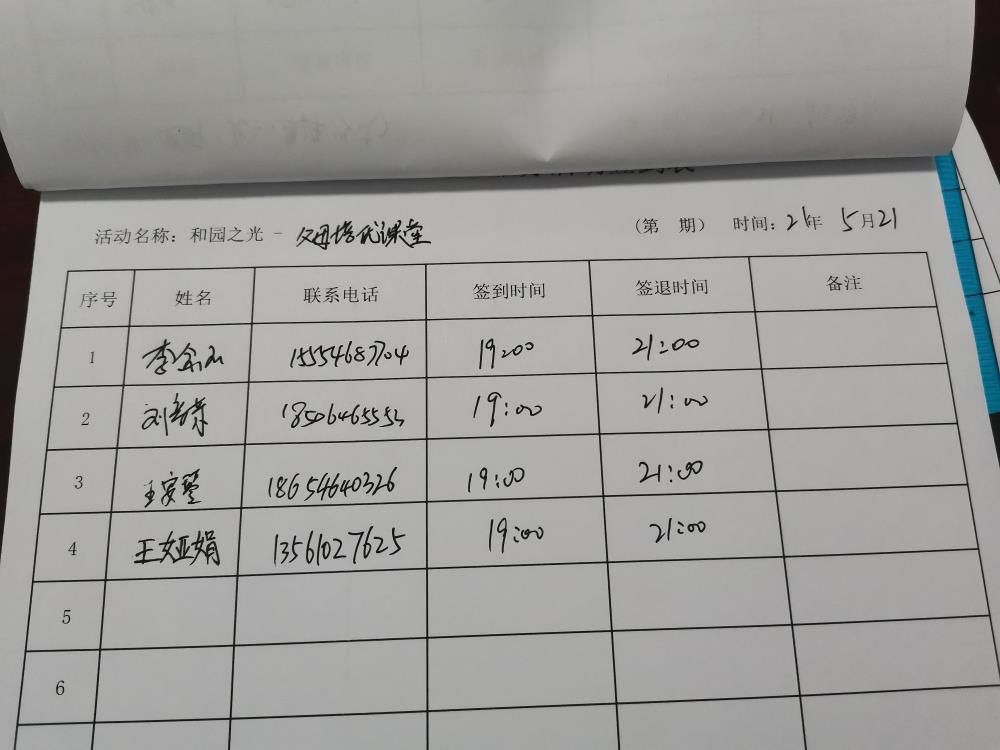 活动名称：和园之光 - 父母培优课堂 （第 期） 时间：21年 5月21
序号 姓名 联系电话 签到时间 签退时间 备注
1 15554687704 19:00 21:00
2 18506465553 19:00 21:00
3 王安玺 18654640326 19:00 21:00
4 王娅娟 13561027625 19:00 21:00
5
6